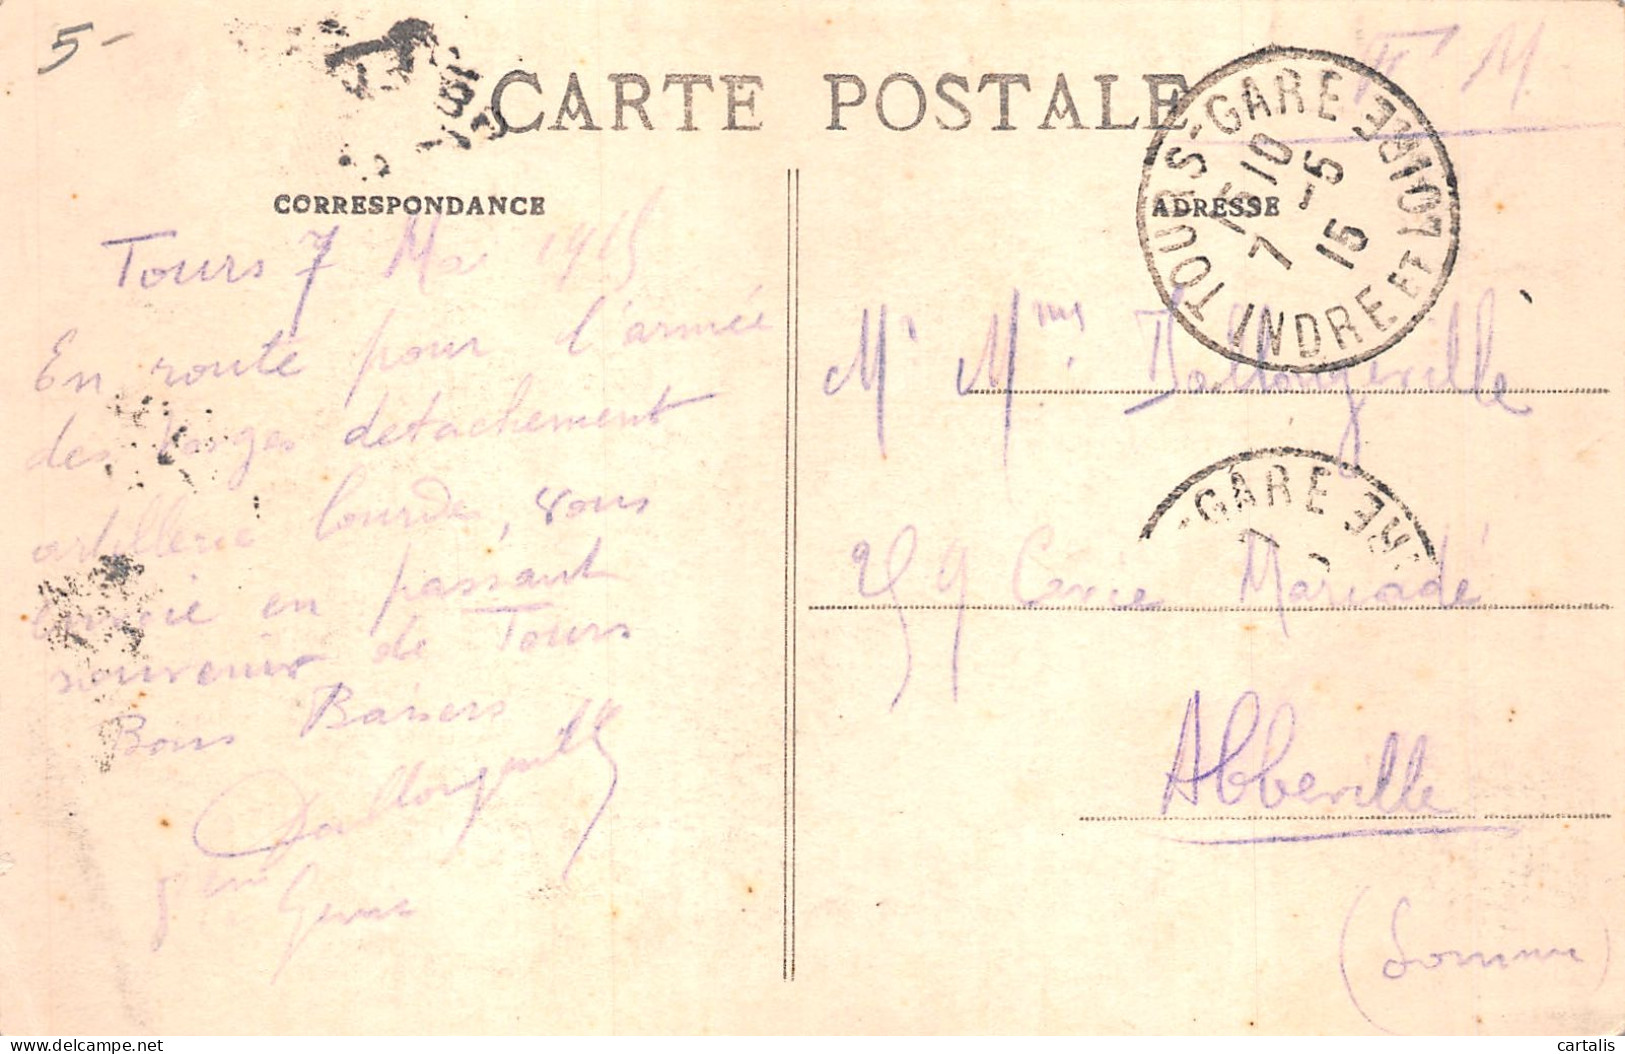 5-
CARTE POSTALE
F M
CORRESPONDANCE
ADRESSE
TOURS-GARE
15 10
7 -5
15
INDRE ET LOIRE
Tours 7 Mai 1915
En route pour l'armée
des Vosges detachement
artillerie lourde, vous
envoie en passant
souvenir de Tours
Bons Baisers
Dallongeville
5eme Genie
Mr Mme Dallongeville
259 Cssée Marcadé
Abbeville
(Somme)
-GARE
IRE
146338
cartalis